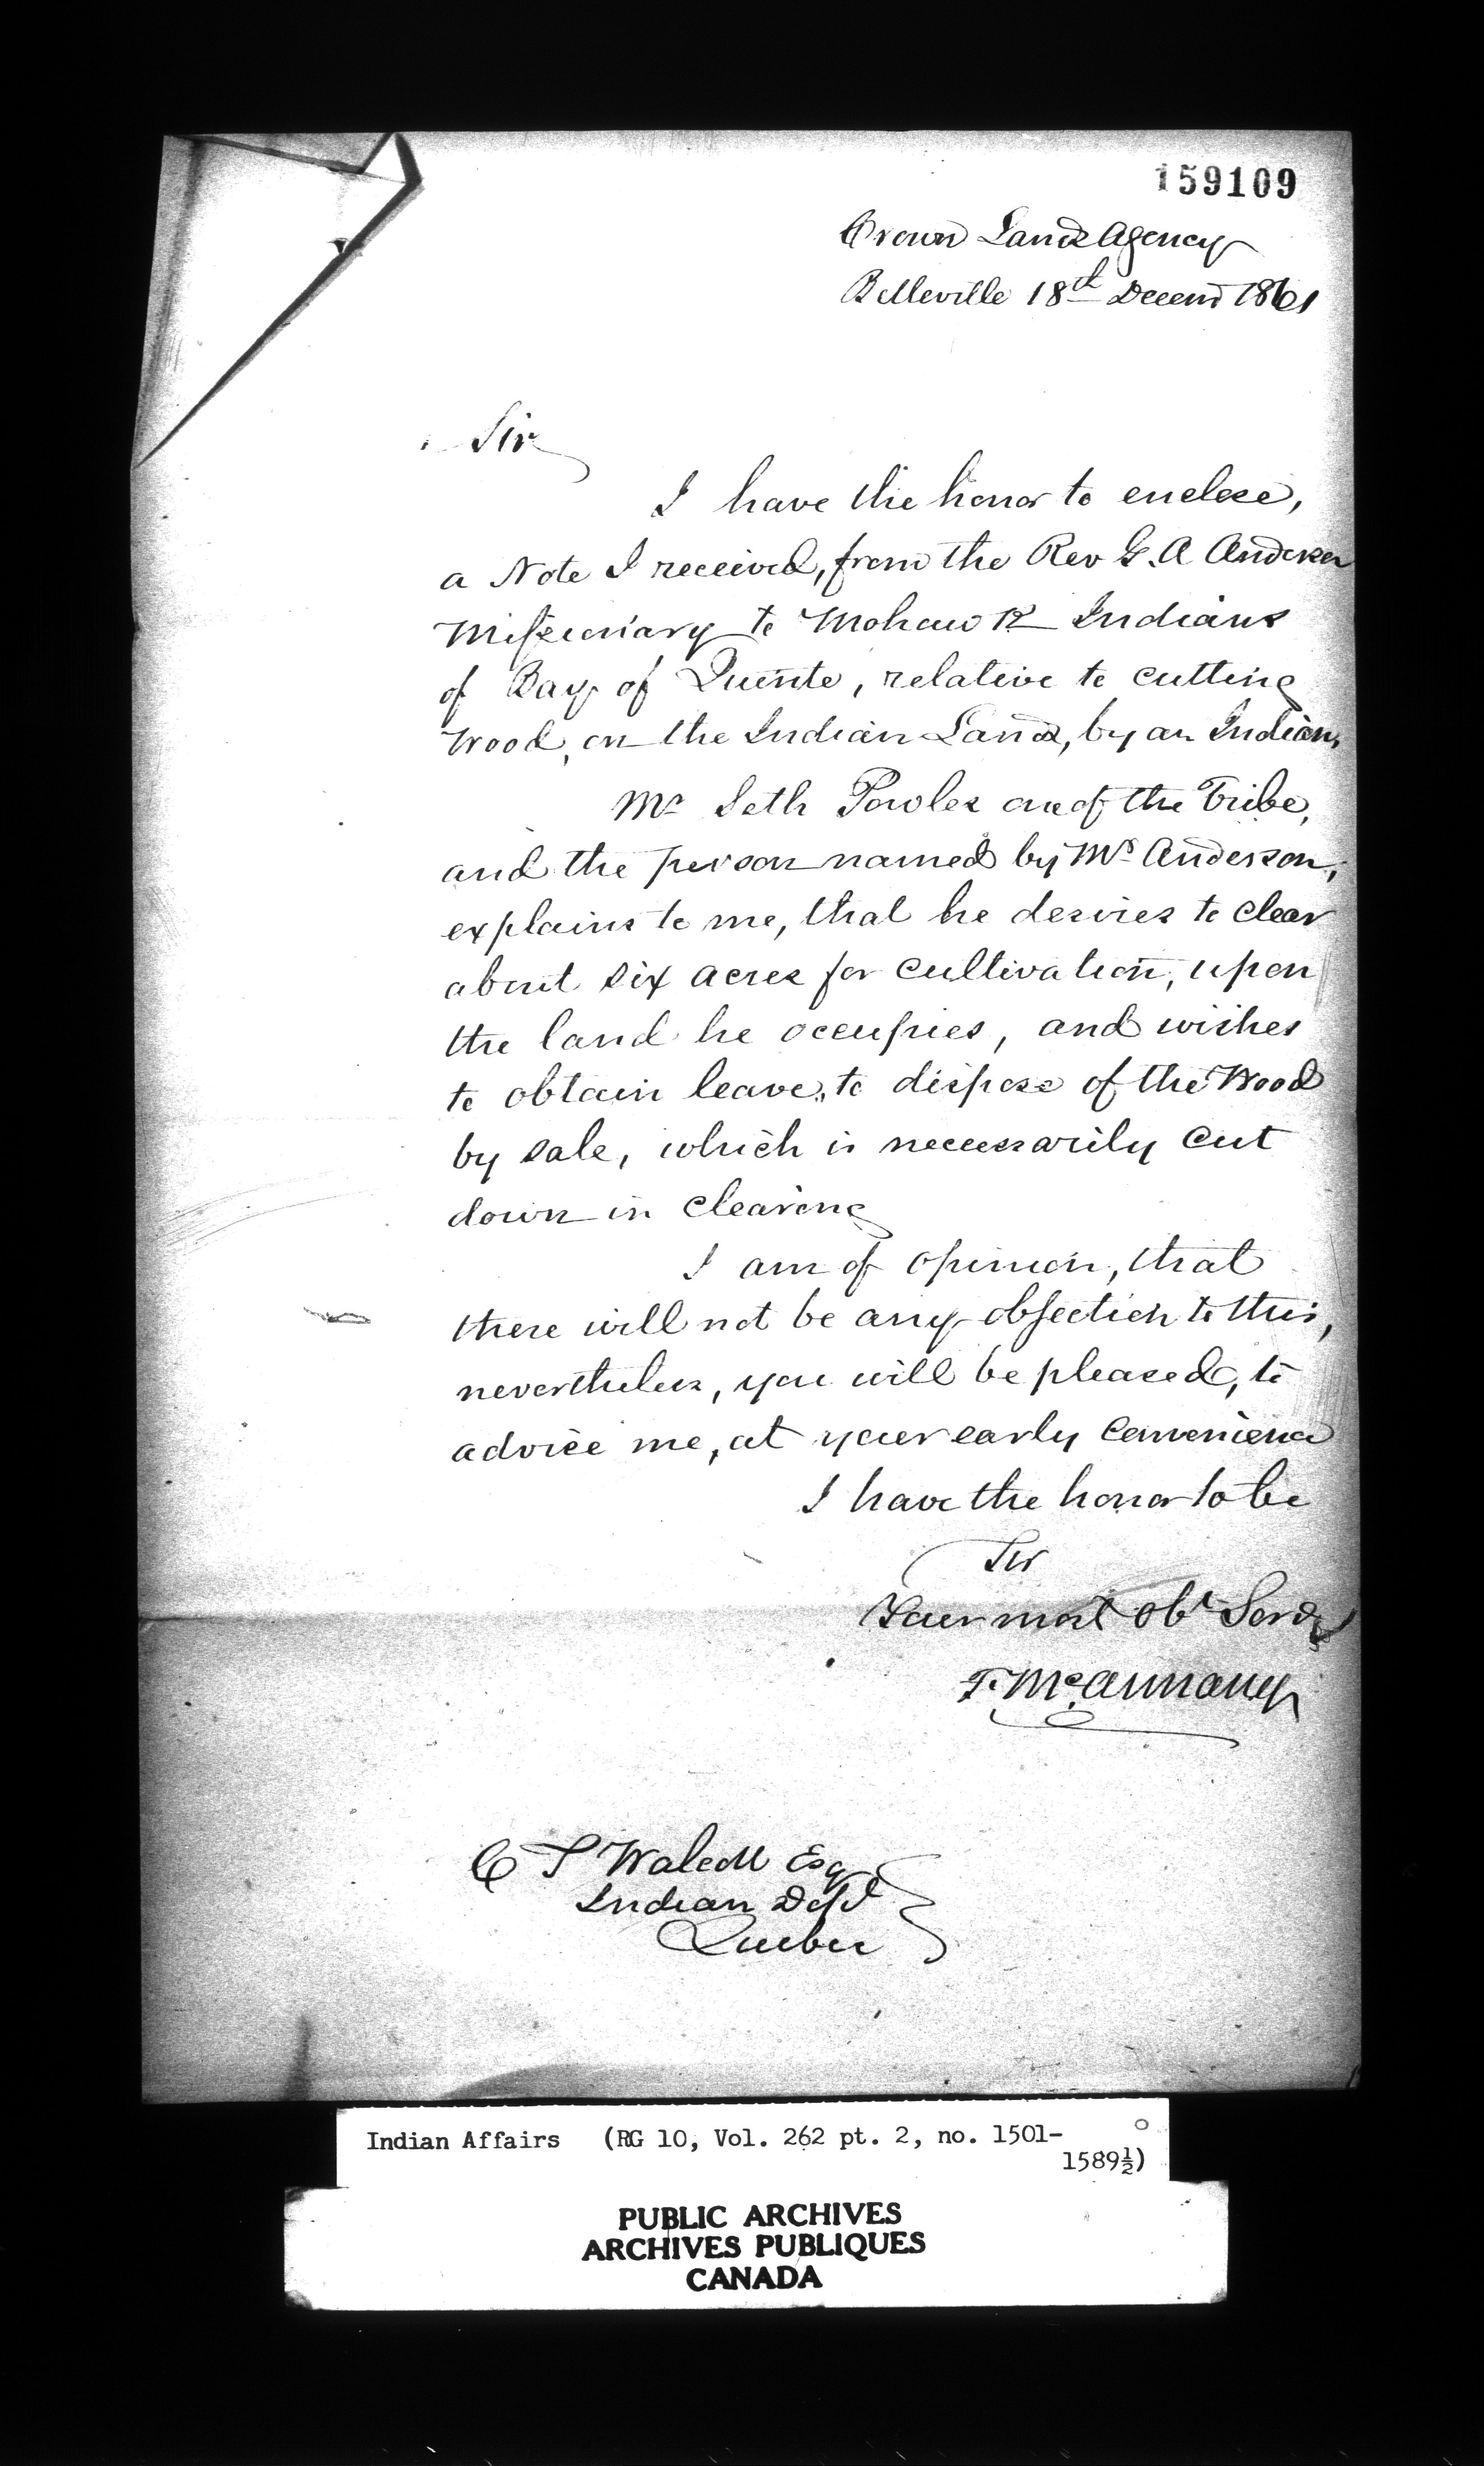 159109
Crown Lands Agency
Belleville 18th Decemr 1861
Sir
I have the honor to enclose,
a Note I received, from the Rev G. A Anderson
Missionary to Mohawk Indians
of Bay of Quinte, relative to cutting
Wood, on the Indian Lands, by an Indian,
Mr Seth Powles one of the Tribe,
and the person named by Mr Anderson,
explains to me, that he desires to clear
about six acres for cultivation, upon
the land he occupies, and wishes
to obtain leave, to dispose of the Wood
by sale, which is necessarily cut
down in clearing
I am of opinion, that
there will not be any objection to this,
nevertheless, you will be pleased, to
advise me, at your early convenience
I have the honor to be
Sir
Your most obt Servt
T. McAnnany
C T Walcott Esq
Indian Dept
Quebec
Indian Affairs (RG 10, Vol. 262 pt. 2, no. 1501-
1589½)
PUBLIC ARCHIVES
ARCHIVES PUBLIQUES
CANADA